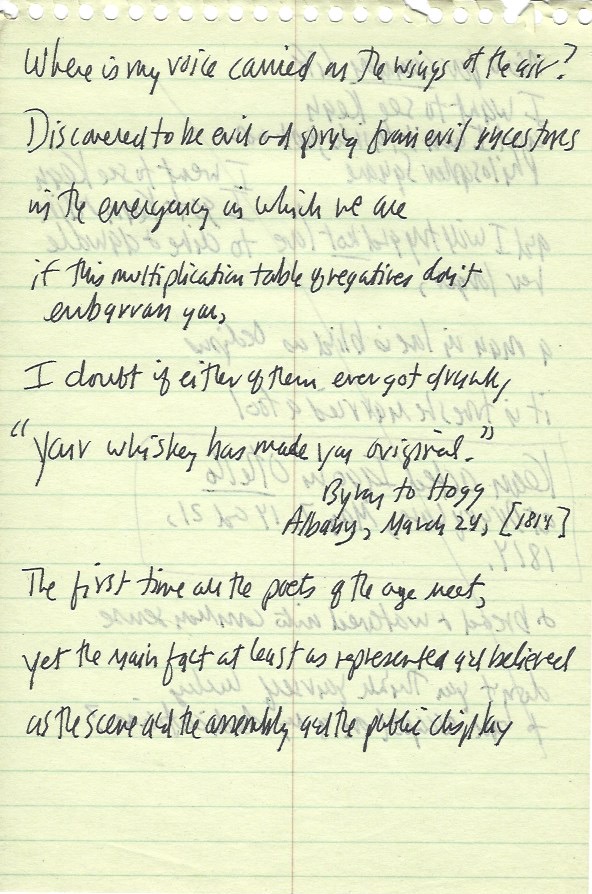 Where is my voice carried on the wings of the air?
Discovered to be evil and sprung from evil ancestors
in the emergency in which we are
if this multiplication table of negatives don't
embarrass you,
I doubt if either of them ever got drunk,
"your whiskey has made you original."
Byron to Hogg
Albany, March 24, [1814]
The first time all the poets of the age meet,
yet the main fact at least as represented and believed
as the scene and the assembly and the public display